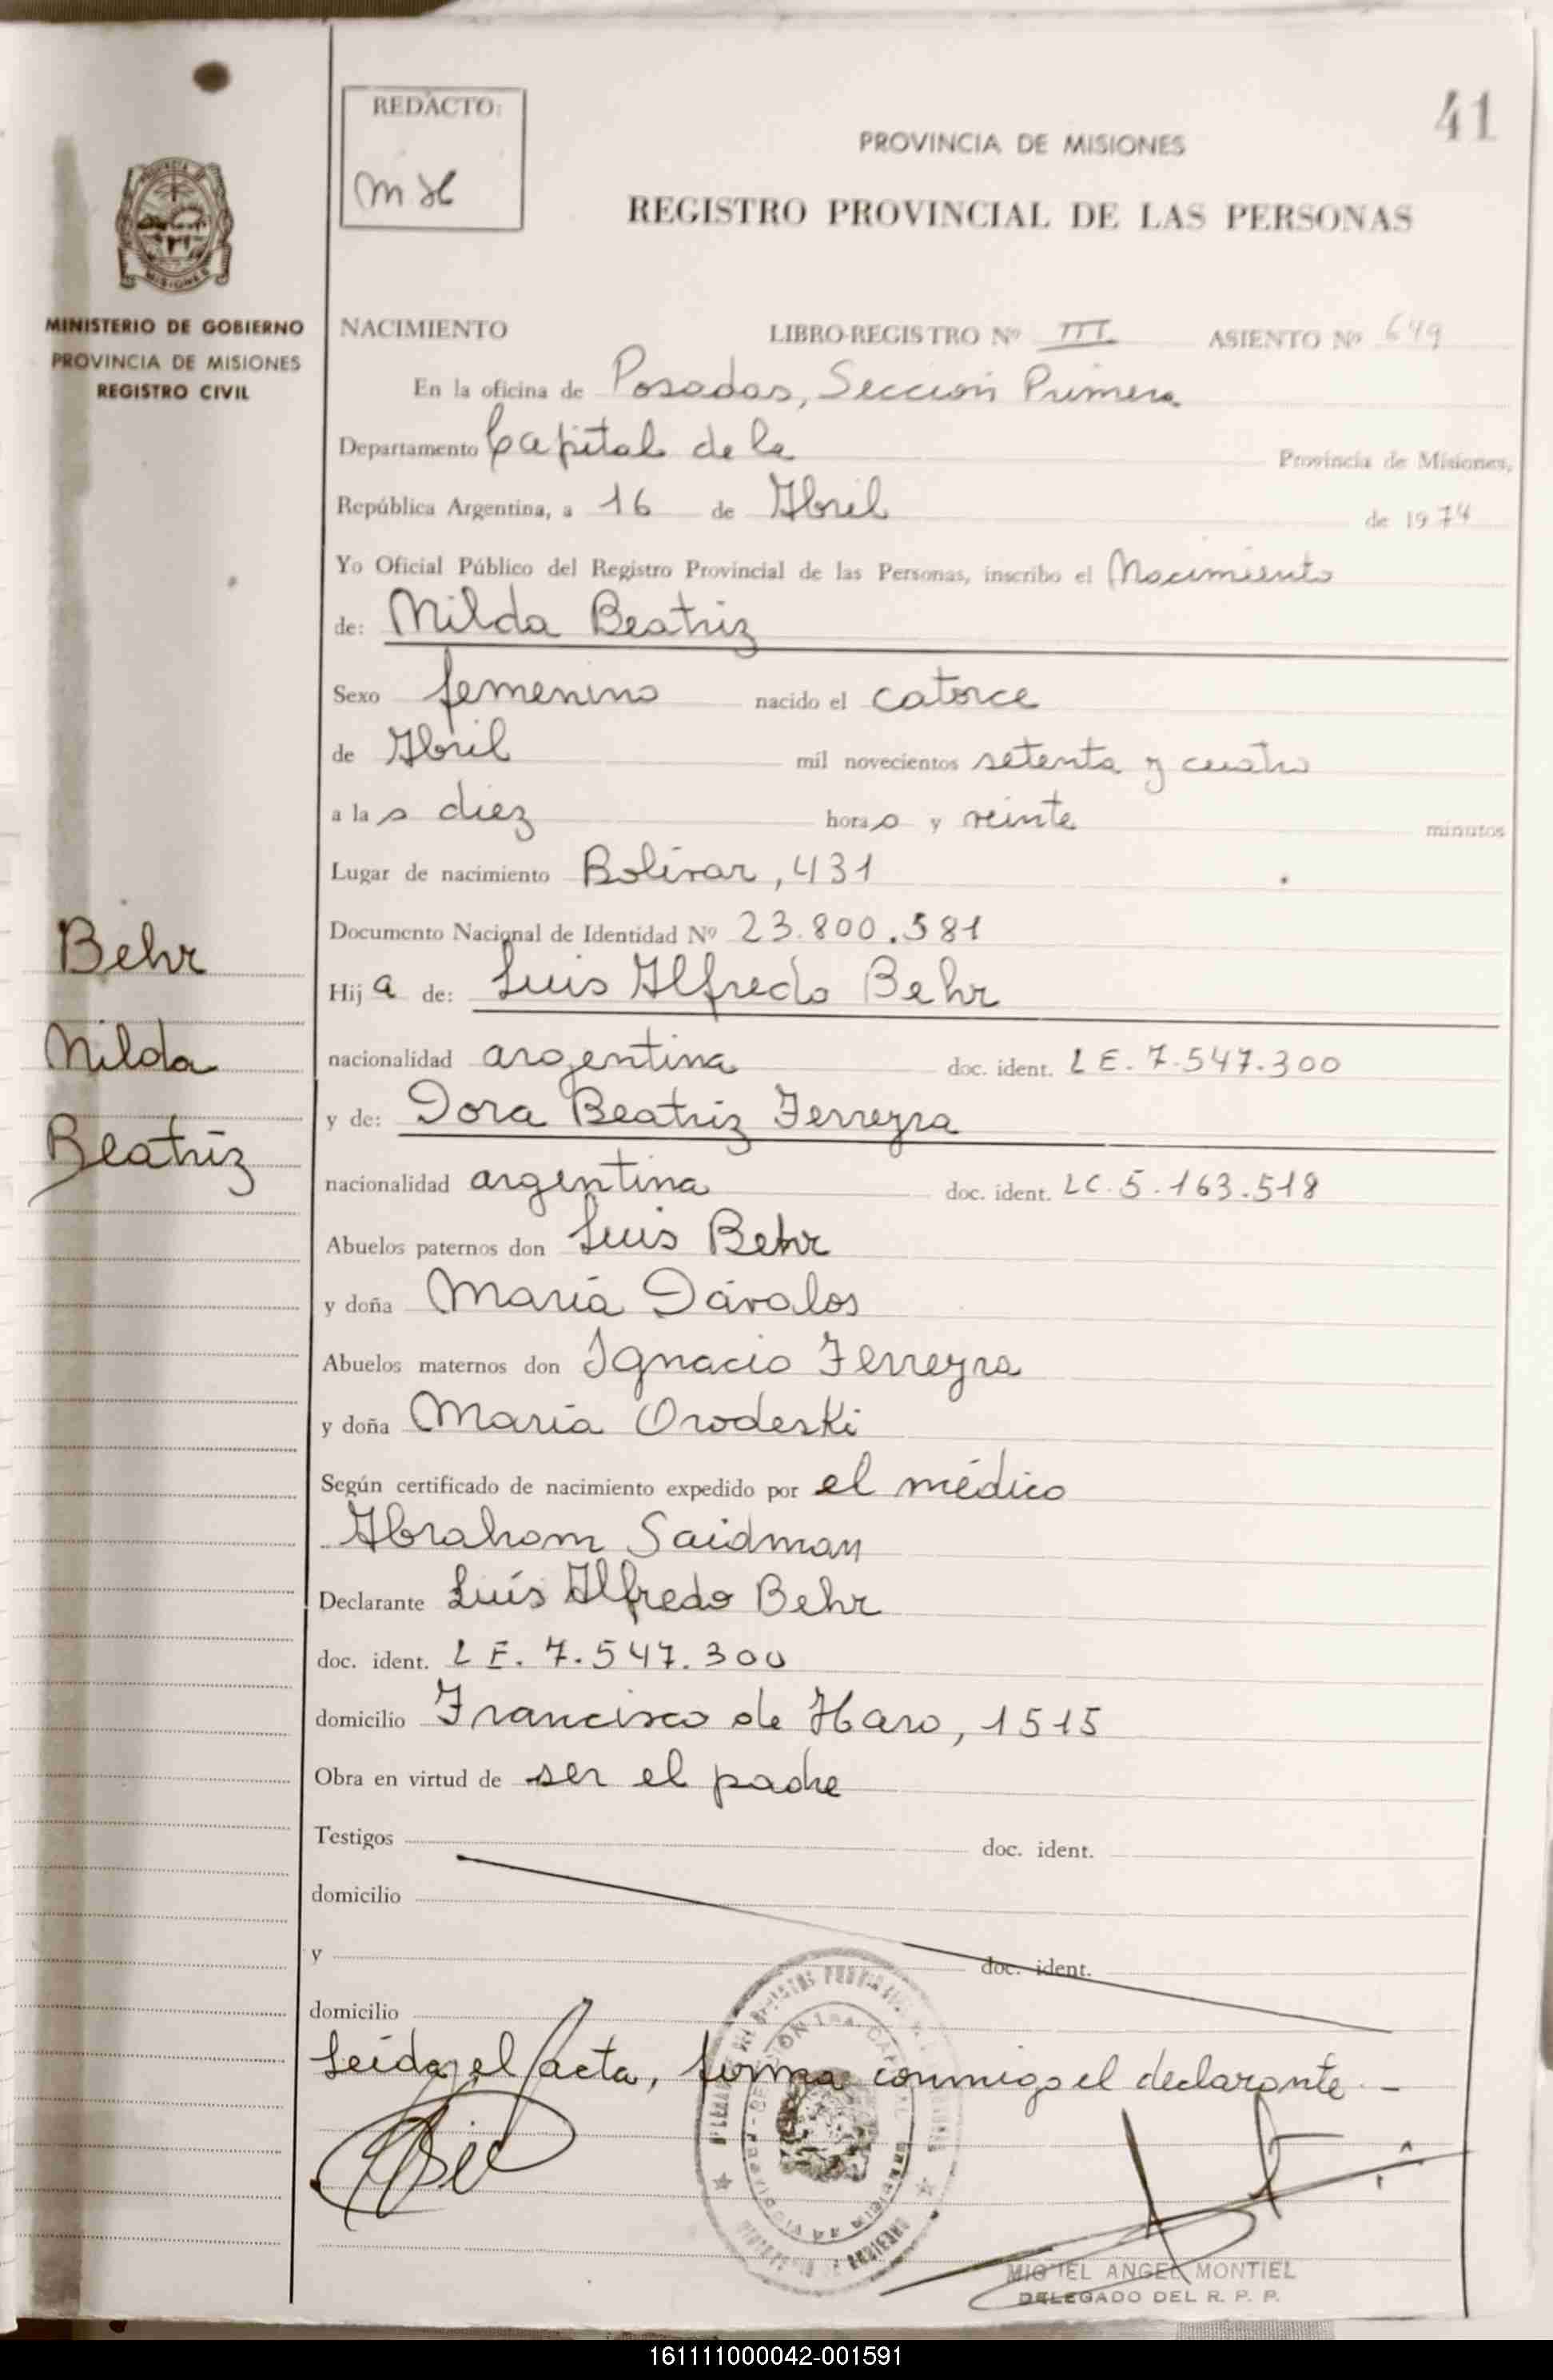 41
REDACTO:
PROVINCIA DE MISIONES
REGISTRO PROVINCIAL DE LAS PERSONAS
MISIONES
MINISTERIO DE GOBIERNO
PROVINCIA DE MISIONES
REGISTRO CIVIL
NACIMIENTO LIBRO-REGISTRO Nº III ASIENTO Nº 649
En la oficina de Posadas, Sección Primera
Departamento Capital de la Provincia de Misiones,
República Argentina, a 16 de Abril de 1974
Yo Oficial Público del Registro Provincial de las Personas, inscribo el Nacimiento
de: Nilda Beatriz
Sexo femenino nacido el catorce
de Abril mil novecientos setenta y cuatro
a las diez horas y veinte minutos
Lugar de nacimiento Bolívar, 431
Documento Nacional de Identidad Nº 23.800.581
Behr
Hija de: Luis Alfredo Behr
Nilda
nacionalidad argentina doc. ident. L E. 7.547.300
y de: Dora Beatriz Ferreyra
Beatriz
nacionalidad argentina doc. ident. LC. 5.163.518
Abuelos paternos don Luis Behr
y doña María Dávalos
Abuelos maternos don Ignacio Ferreyra
y doña María Orodeski
Según certificado de nacimiento expedido por el médico
Abraham Saidman
Declarante Luís Alfredo Behr
doc. ident. L E. 7.547.300
domicilio Francisco de Haro, 1515
Obra en virtud de ser el padre
Testigos doc. ident.
domicilio
y doc. ident.
domicilio
Leída el acta, firma conmigo el declarante.-
MIGUEL ANGEL MONTIEL
DELEGADO DEL R. P. P.
161111000042-001591